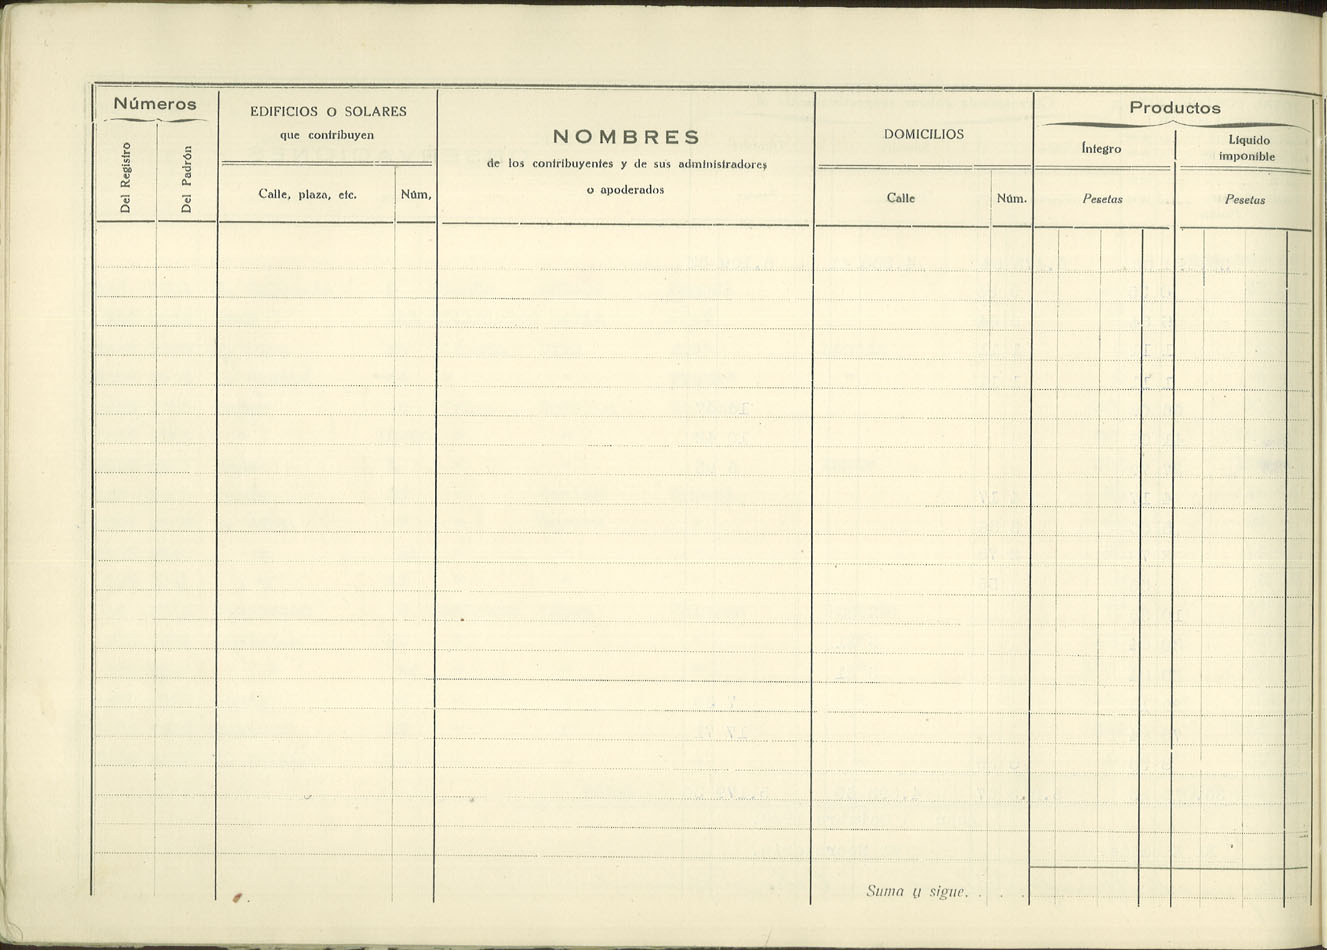 Números
Del Registro
Del Padrón
EDIFICIOS O SOLARES
que contribuyen
Calle, plaza, etc.
Núm,
NOMBRES
de los contribuyentes y de sus administradores
o apoderados
DOMICILIOS
Calle
Núm.
Productos
Íntegro
Pesetas
Líquido
imponible
Pesetas
Suma y sigue. . . .